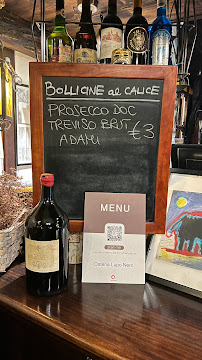 BOLLICINE al CALICE
PROSECCO DOC
TREVISO BRUT
ADAMI
€3
MENU